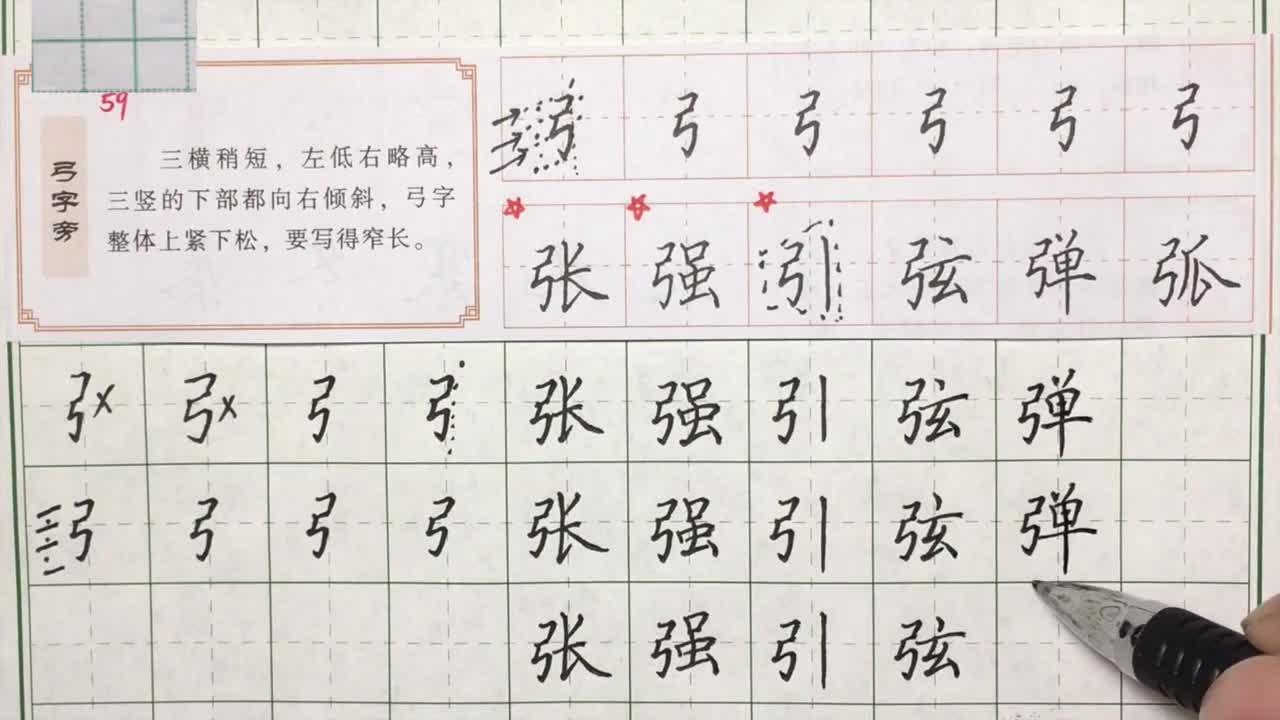 59
弓字旁
三横稍短，左低右略高，
三竖的下部都向右倾斜，弓字
整体上紧下松，要写得窄长。
弓 弓 弓 弓 弓 弓
张 强 引 弦 弹 弧
弓 × 弓 × 弓 弓 张 强 引 弦 弹
弓 弓 弓 弓 张 强 引 弦 弹
张 强 引 弦